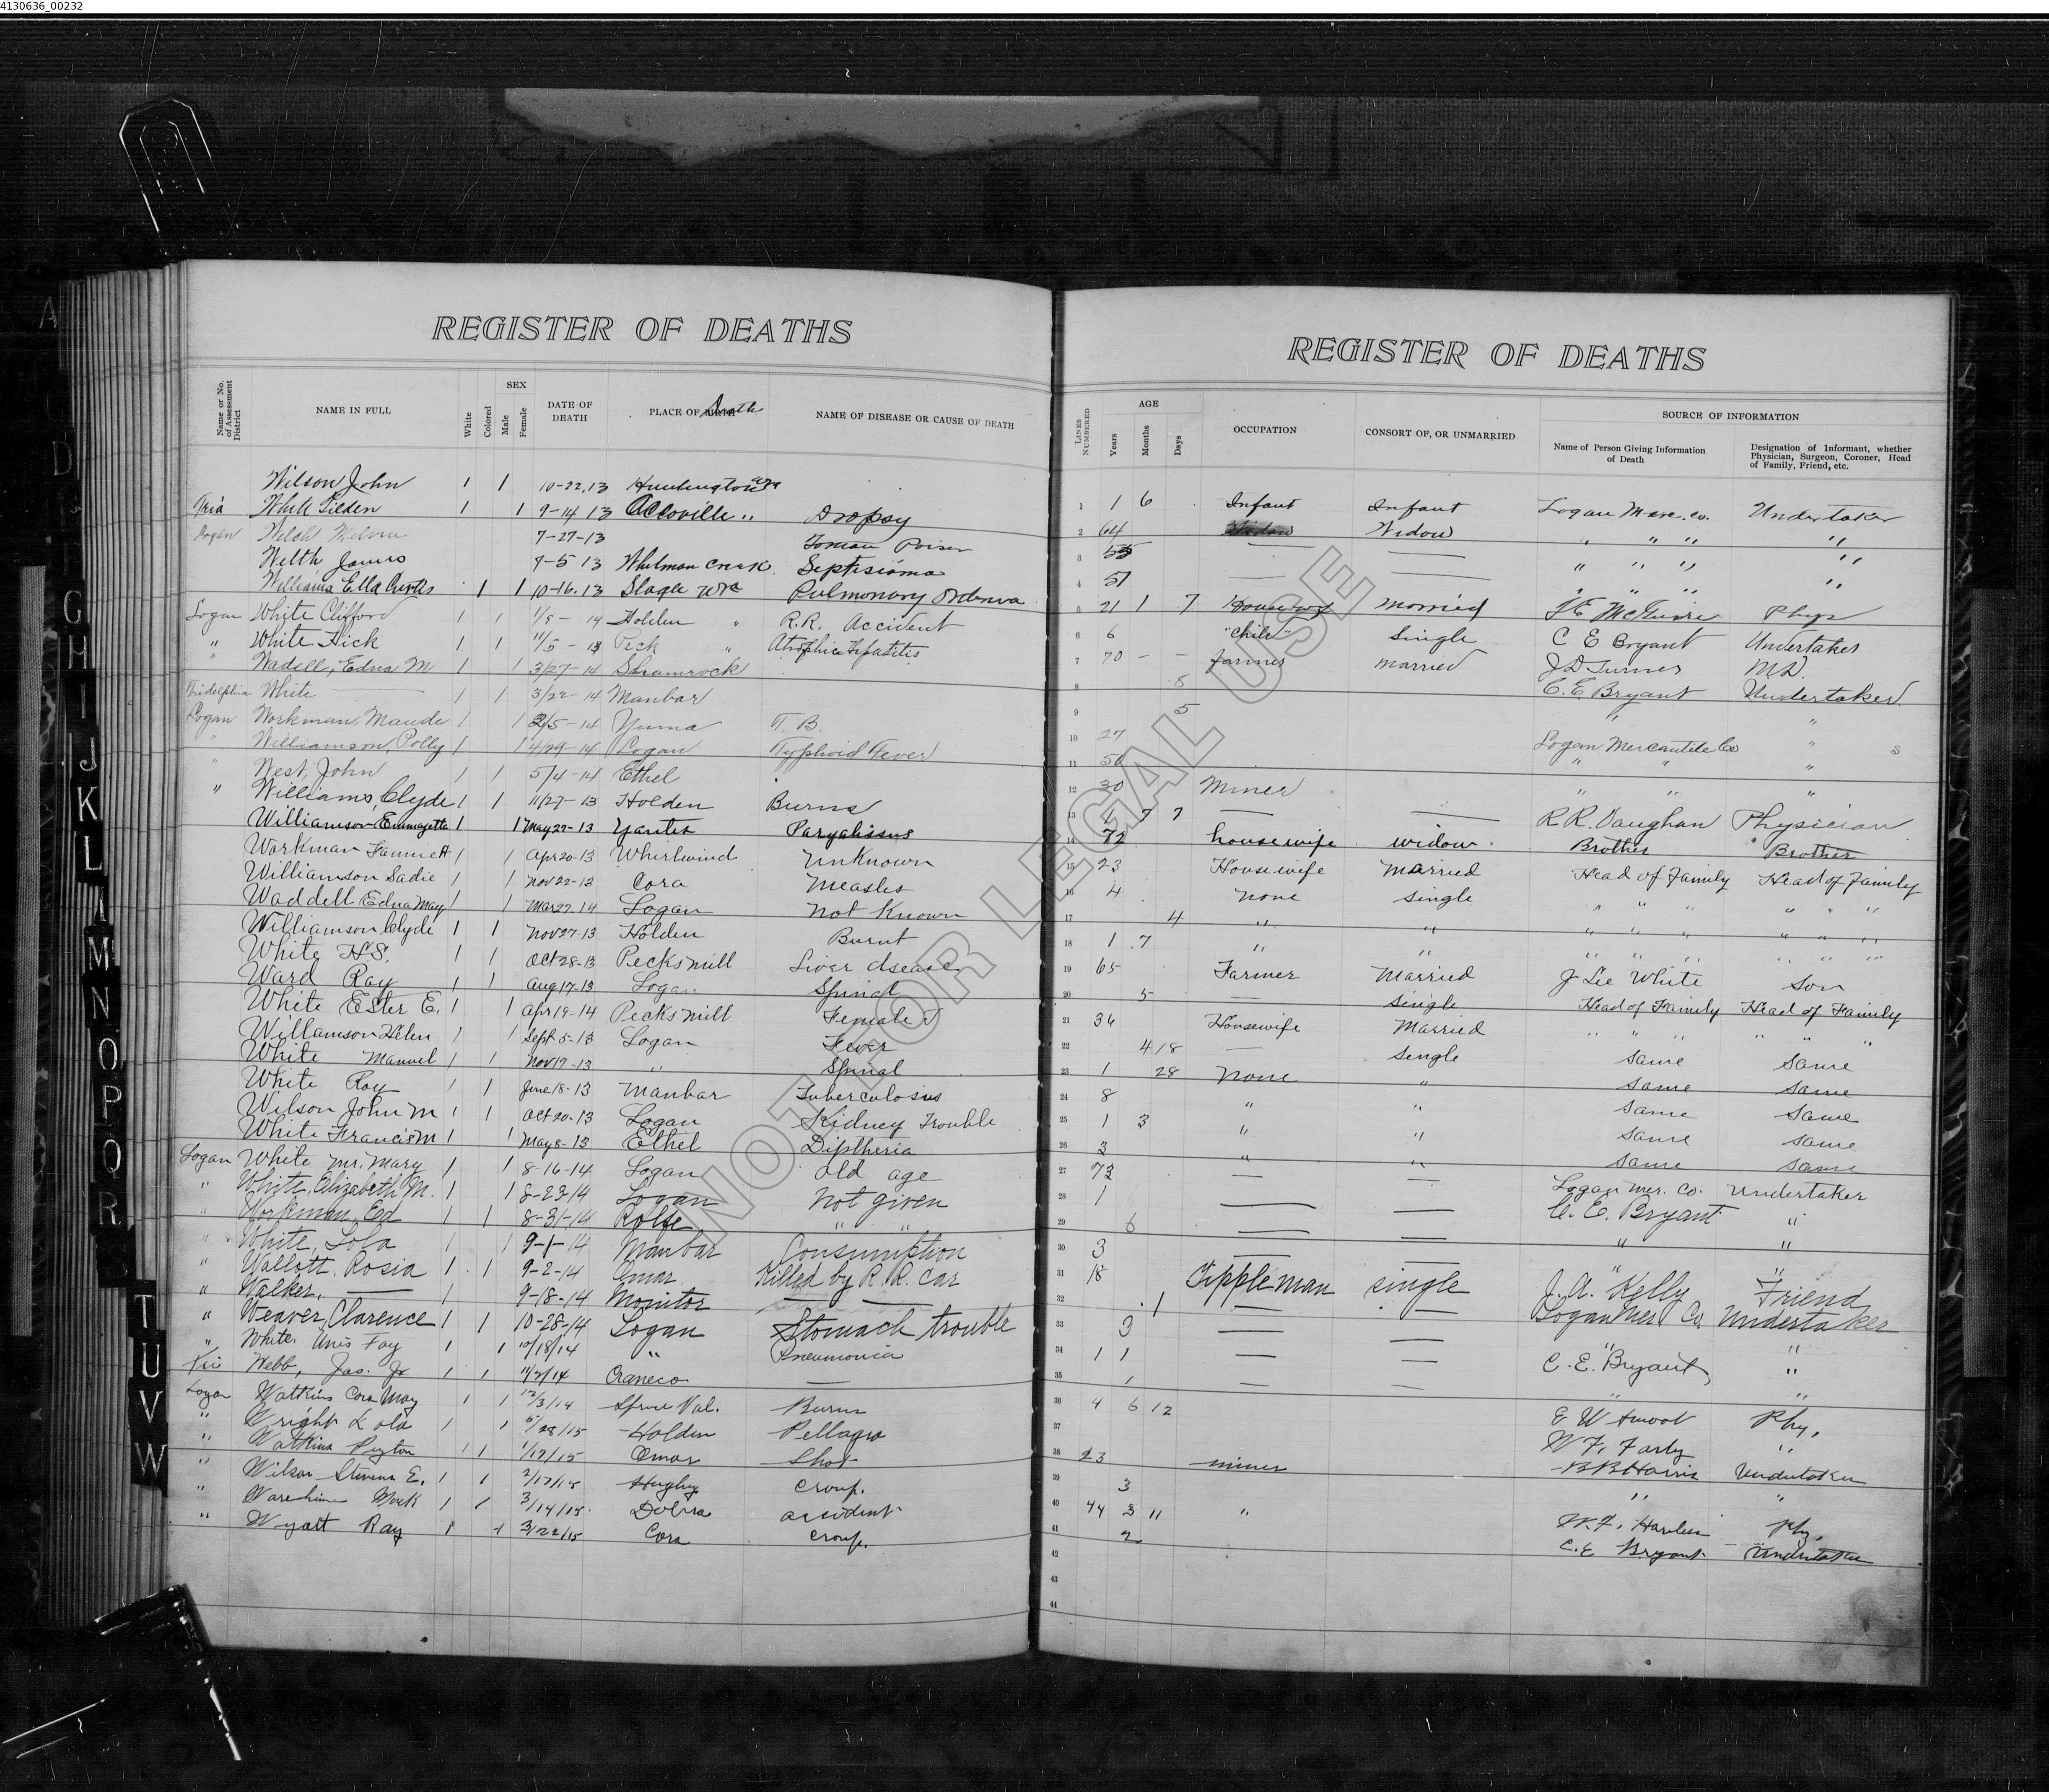 4130636_00232
REGISTER OF DEATHS
Name or No. of Assessment District
NAME IN FULL
White
Colored
SEX
Male
Female
DATE OF DEATH
PLACE OF Death
NAME OF DISEASE OR CAUSE OF DEATH
Wilson John 1 1 10-22.13 Huntington
White Tilden 1 1 9-14 13 Accoville " Dropsy
Logan Welch 7-27-13
James 9-5 13 Whitman Creek Septisioma
Williams Ella Curtis 1 1 10-16.13 Slagle Wva Pulmonary
Logan White Clifford 1 1 1/8-14 Holden " R.R. Accident
" White Dick 1 1 11/5-13 Peck " Atrophic
" Wadell, Edna M 1 1 3/27-14 Shamrock
Tridelphia White — 1 1 3/22-14 Manbar
Logan Workman, Maude 1 1 2/5-14 Yuma T. B.
" Williamson, Polly 1 1 4/29-14 Logan Typhoid Fever
" West, John 1 1 5/4-14 Ethel
" Williams, Clyde 1 1 11/27-13 Holden Burns
Williamson Emmazetta 1 1 May 29-13 Yantes Paryalissus
Workman Fannie A 1 1 Apr 20-13 Whirlwind Unknown
Williamson Sadie 1 1 Nov 22-13 Cora Measles
Waddell Edna May 1 1 Mar 27-14 Logan Not Known
Williamson Clyde 1 1 Nov 27-13 Holden Burnt
White H.S. 1 1 Oct 28-13 Pecks mill Liver dsease
Ward Ray 1 1 Aug 17-13 Logan Spinal
White Ester E. 1 1 Apr 19-14 Pecks mill Female T
Willamson Helen 1 1 Sept 5-13 Logan Fever
White Manuel 1 1 Nov 19-13 " Spinal
White Roy 1 1 June 18-13 Manbar Tuberculosis
Wilson John M 1 1 Oct 20-13 Logan Kidney Trouble
White Francis M 1 1 May 8-13 Ethel Diptheria
Logan White Mr. Mary 1 1 8-16-14 Logan old age
" White, Elizabeth M. 1 1 8-23 14 Logan Not given
" Workman, Ed 1 1 8-31-14 Rolfe " "
" White, Lola 1 1 9-1-14 Manbar Consumption
" Wallott, Rosia 1 1 9-2-14 Omar Killed by R. R. Car
" Walker, — 1 9-18-14 Monitor —
" Weaver, Clarence 1 1 10-28-14 Logan Stomach trouble
" White Unis Fay 1 1 10/18/14 " Pneumonia
Tri Webb, Jas. Jr 1 1 11/2/14 Craneco —
Logan Watkins Cora May 1 1 12/3/14 Spruce Val. Burns
" Wright Lola 1 1 5/28/15 Holden Pellagra
" Watkins Peyton 1 1 1/12/15 Omar Shot
" Wilson Stevens E. 1 1 2/17/15 Hughey Croup.
" Mark 1 1 3/14/15 accident
" Wyatt Ray 1 1 3/22/15 Cora Croup.
REGISTER OF DEATHS
LINES NUMBERED
AGE
Years
Months
Days
OCCUPATION
CONSORT OF, OR UNMARRIED
SOURCE OF INFORMATION
Name of Person Giving Information of Death
Designation of Informant, whether Physician, Surgeon, Coroner, Head of Family, Friend, etc.
1 1 6 Infant Infant Logan Merc. Co. Undertaker
2 64 Widow " " " "
3 — — " " " "
4 51 — — " " " "
5 21 1 7 Housewf Married Phys
6 6 "Child" Single C E Bryant Undertaker
7 70 — — farmer married J D Turner M.D.
8 8 C. E. Bryant Undertaker
9 5 " "
10 27 Logan Mercantile Co " s
11 50 " " "
12 30 Miner " " "
13 7 7 — — R R. Vaughan Physician
14 72 housewife widow Brother Brother
15 23 Housewife Married Head of Family Head of Family
16 4 None Single " " " " " "
17 4 " " " " " " " "
18 1 7 " " " " " " " "
19 65 Farmer Married J Lee White Son
20 5 — Single Head of Family Head of Family
21 34 Housewife Married " " " " " "
22 4 18 — Single Same Same
23 1 28 None " Same Same
24 8 " " Same Same
25 1 3 " " Same Same
26 3 " " Same Same
27 73 — — Logan Mer. Co. Undertaker
28 1 — — C. E. Bryant "
29 6 — — " "
30 3 — — " "
31 18 Tippleman single J. A. Kelly Friend
32 1 — — Logan Mer Co. Undertaker
33 3 — — " "
34 1 1 — — C. E. Bryant "
35 1 — — " "
36 4 6 12 E W Smoot Phy.
37 W F. Farly "
38 23 miner B B Harris Undertaker
39 3 " "
40 44 3 11 " Phy.
41 2 C. E Bryant Undertaker
42
43
44
NOT FOR LEGAL USE
A
D
G
H
I
J
K
L
M
N
O
P
Q
R
T
U
V
W